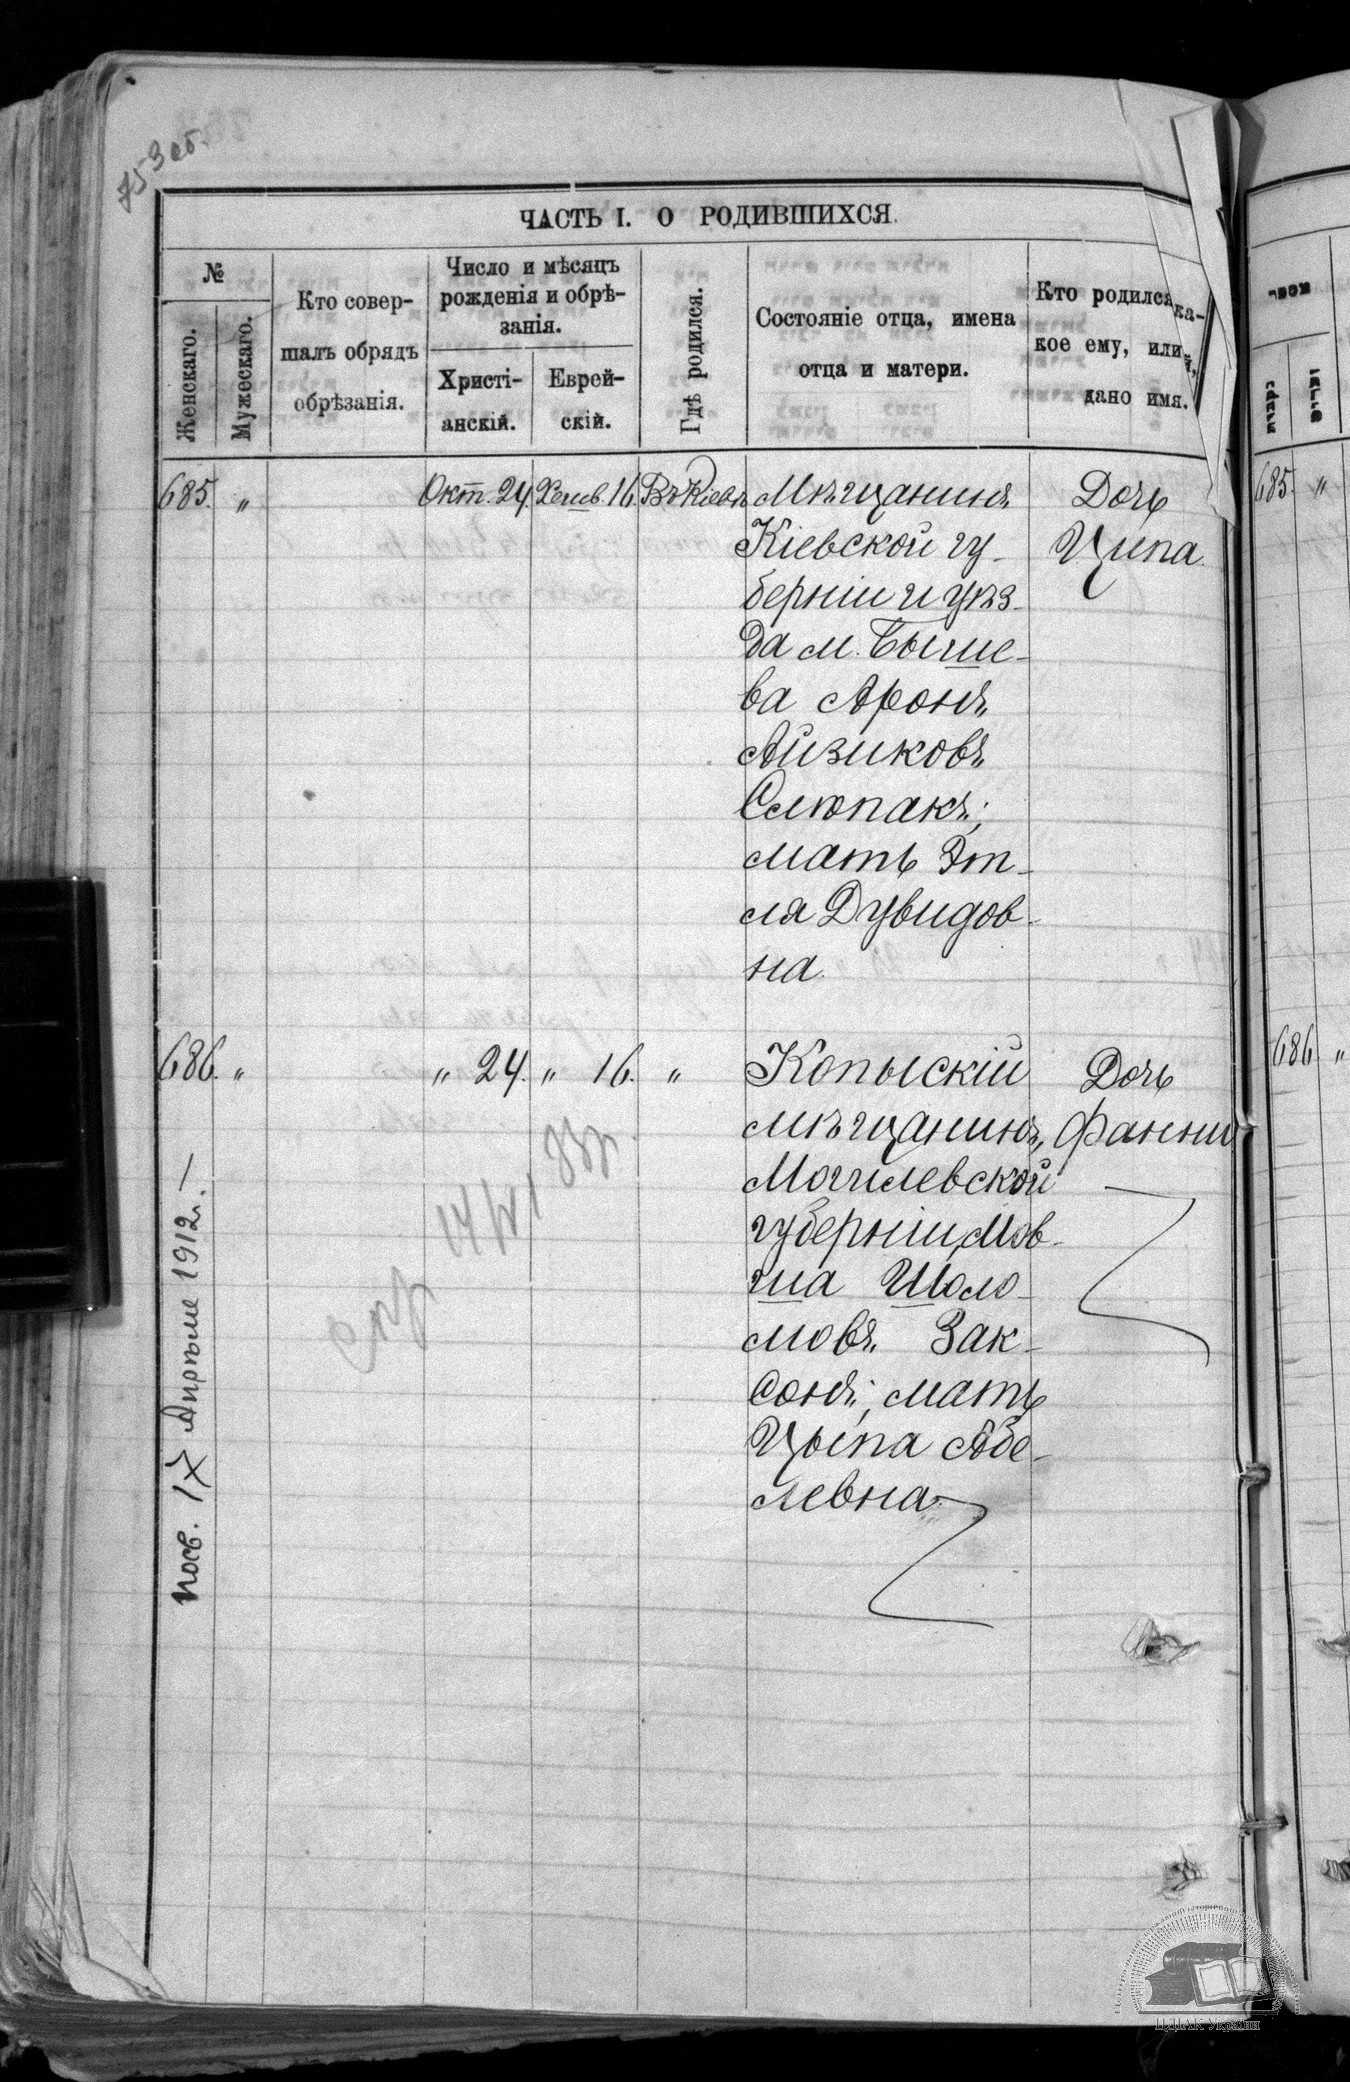 753 об.
ЧАСТЬ I. О РОДИВШИХСЯ.
№
Женскаго.
Мужескаго.
Кто совер-
шалъ обрядъ
обрѣзанія.
Число и мѣсяцъ
рожденія и обрѣ-
занія.
Христі-
анскій.
Еврей-
скій.
Гдѣ родился.
Состояніе отца, имена
отца и матери.
Кто родился, ка-
кое ему, или ей,
дано имя.
685. „ Окт. 24. Хешв. 16. Въ Кіевѣ Мѣщанинъ Дочь
Кіевской гу- Ципа.
берніи и уѣз-
да м. Быше-
ва Аронъ
Айзиковъ
Слюпакъ;
мать Эт-
ля Дувидов-
на.
686. „ „ 24. „ 16. „ Копыскій Дочь
мѣщанинъ, Фанни
Могилевской
губерніи, Мов-
ша Шоло-
мовъ Зак-
сонъ; мать
Цыпа Абе-
левна.
17 Апрѣля 1912 г. —
מספר
נקבות
זכרים
685. „
686 „
ЦДІАК України